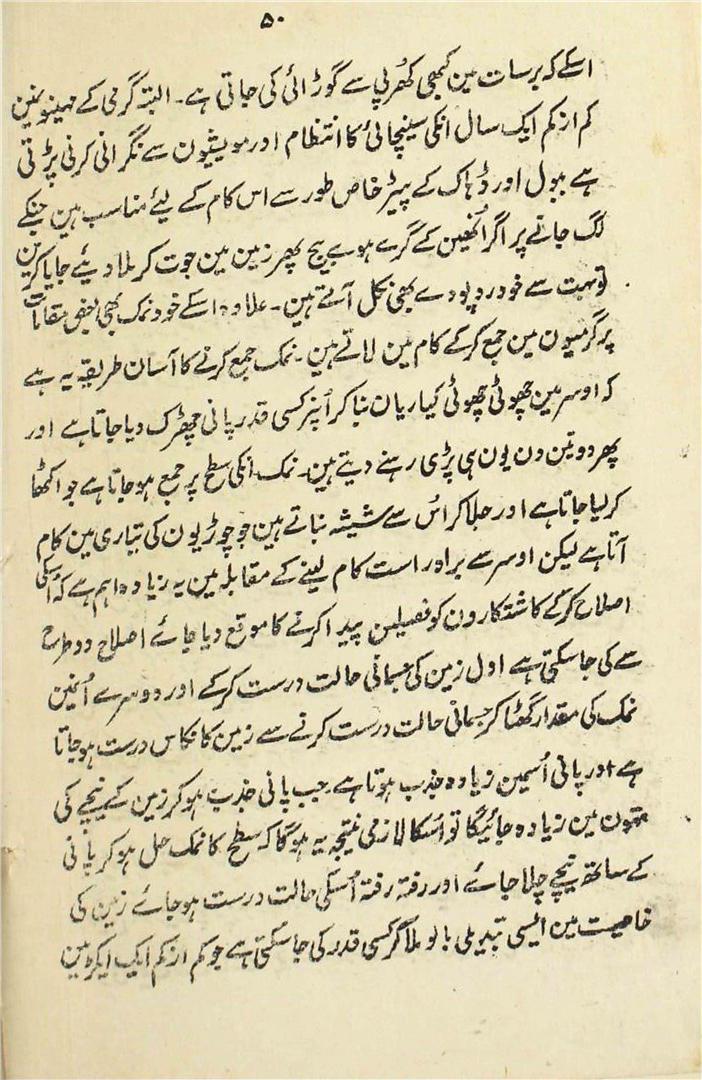 ۵۰
اسکے کہ برسات مین کبھی کھُرپی سے گوڑائی کی جاتی ہے۔ البتہ گرمی کے مہینونمین
کم ازکم ایک سال انکی سینچائی کا انتظام اور مویشیون سے نگرانی کرنی پڑتی
ہے ببول اور ڈہاک کے پیڑ خاص طور سے اس کام کے لیئے مناسب ہین جنکے
لگ جانے پر اگر اُنھین کے گرے ہوے بیج پھر زمین مین جوت کر ملا دیئے جایا کرین
تو بہت سے خودرو پودے بھی نکل آتے ہین۔ علاوہ اسکے خود نمک بھی بعض مقامات
پر گرمیون مین جمع کرکے کام مین لاتے ہین۔ نمک جمع کرنے کا آسان طریقہ یہ ہے
کہ اوسر مین چھوٹی چھوٹی کیاریان بنا کر اُنپر کسی قدر پانی چھڑک دیا جاتا ہے اور
پھر دو تین دن یون ہی پڑی رہنے دیتے ہین۔ نمک انکی سطح پر جمع ہوجاتا ہے جو اکٹھا
کرلیا جاتا ہے اور جلا کر اُس سے شیشہ بناتے ہین جو چوڑیون کی تیاری مین کام
آتا ہے لیکن اوسر سے براہ راست کام لینے کے مقابلہ مین یہ زیادہ اہم ہے کہ اُسکی
اصلاح کرکے کاشتکارون کو فصلین پیدا کرنے کا موقع دیا جائے اصلاح دو طرح
سے کی جاسکتی ہے اول زمین کی جسمانی حالت درست کرکے اور دوسرے اُسمین
نمک کی مقدار گھٹا کر جسمانی حالت درست کرنے سے زمین کا نکاس درست ہوجاتا
ہے اور پانی اُسمین زیادہ جذب ہوتا ہے جب پانی جذب ہوکر زمین کے نیچے کی
تہون مین زیادہ جائیگا تو اُسکا لازمی نتیجہ یہ ہوگا کہ سطح کا نمک حل ہوکر پانی
کے ساتھ نیچے چلا جائے اور رفتہ رفتہ اُسکی حالت درست ہوجائے زمین کی
خاصیت مین ایسی تبدیلی بالو ملا کر کسی قدر کی جاسکتی ہے جو کم ازکم ایک ایکڑ مین